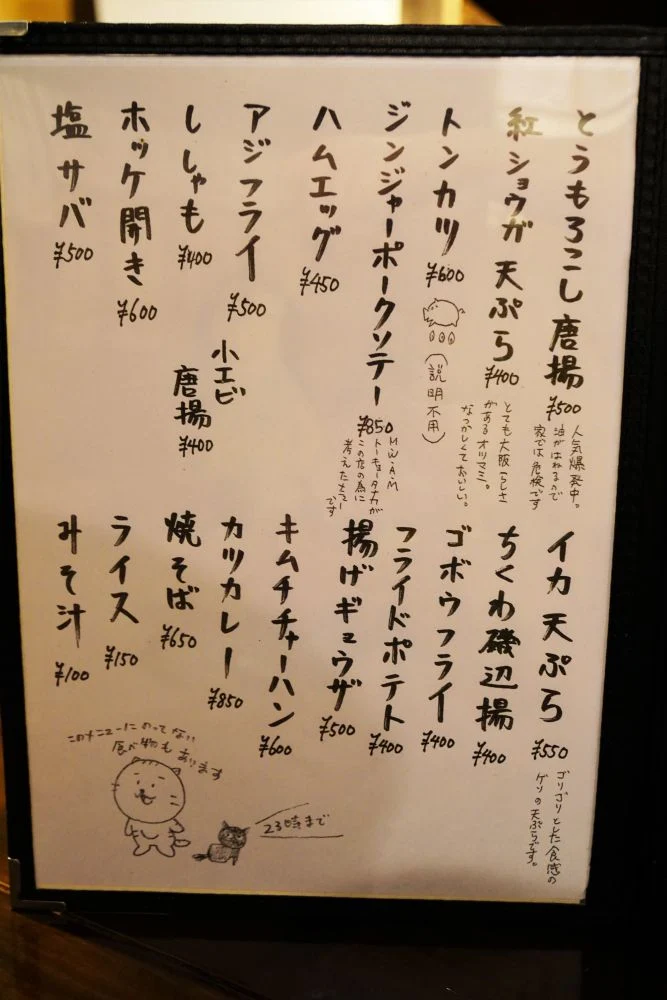 とうもろこし唐揚
¥500
人気爆発中。
油がはねるので
家では危険です
紅ショウガ天ぷら
¥400
とても大阪らしさ
があるオツマミ。
なつかしくておいしい。
トンカツ
¥600
(説明不用)
ジンジャーポークソテー
¥850
M.W.A.M
トーキョータナカが
この店の為に
考えたソテー
です
ハムエッグ
¥450
アジフライ
¥500
小エビ
唐揚
¥400
ししゃも
¥400
ホッケ開き
¥600
塩サバ
¥500
イカ天ぷら
¥550
ゴリゴリとした食感の
ゲソの天ぷらです。
ちくわ磯辺揚
¥400
ゴボウフライ
¥400
フライドポテト
¥400
揚げギョウザ
¥500
キムチチャーハン
¥600
カツカレー
¥850
焼そば
¥650
ライス
¥150
みそ汁
¥100
このメニューにのってない
食べ物もあります
23時まで